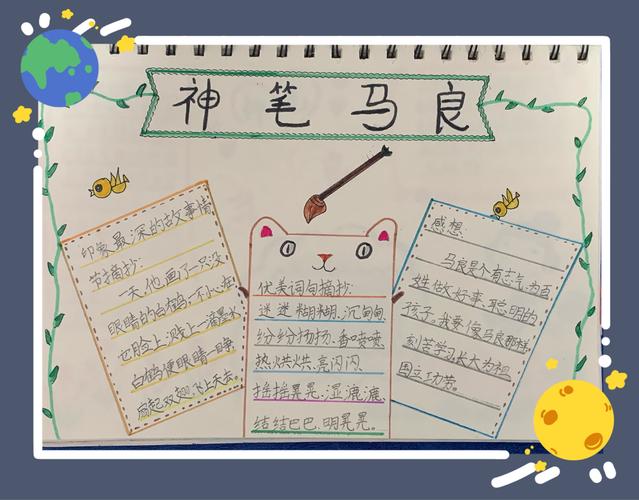 神笔马良
印象最深的故事情
节摘抄:
一天,他画了一只没
眼睛的白鹤,一不小心,在
它脸上溅上一滴墨水,
白鹤便眼睛一睁,
扇起双翅飞上天去。
优美词句摘抄:
迷迷糊糊、沉甸甸
纷纷扬扬、香喷喷
热烘烘、亮闪闪、
摇摇晃晃、湿漉漉、
结结巴巴、明晃晃。
感想:
马良是个有志气,为百
姓做好事、聪明的
孩子。我要像马良那样
刻苦学习,长大为祖
国立功劳。